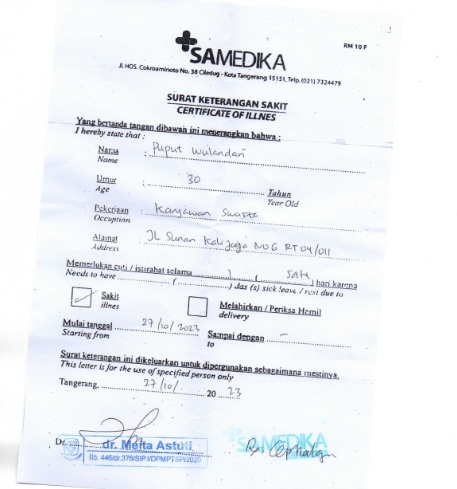 RM 10 F
SAMEDIKA
Jl. HOS. Cokroaminoto No. 38 Ciledug - Kota Tangerang 15151, Telp. (021) 7324479
SURAT KETERANGAN SAKIT
CERTIFICATE OF ILLNES
Yang bertanda tangan dibawah ini menerangkan bahwa :
I hereby state that :
Nama : Puput Wulandari
Name
Umur : 30 Tahun
Age Year Old
Pekerjaan : Karyawan Swasta
Occuption
Alamat : JL Sunan Kalijaga NO 6 RT 04/011
Address
Memerlukan cuti / istirahat selama 1 ( satu ) hari karena
Needs to have ( ) das (s) sick leave / rest due to
Sakit Melahirkan / Periksa Hamil
illnes delivery
Mulai tanggal 27/10/2023 Sampai dengan -
Starting from to
Surat keterangan ini dikeluarkan untuk dipergunakan sebagaimana mestinya.
This letter is for the use of specified person only
Tangerang, 27/10/ 20 23
dr. Meita Astuti
SAMEDIKA